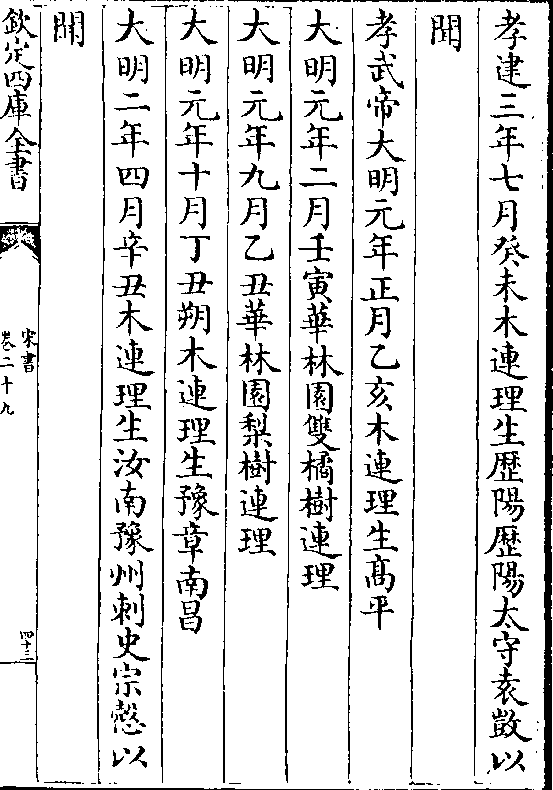 孝建三年七月癸未木連理生歷陽歷陽太守袁敳以
聞
孝武帝大明元年正月乙亥木連理生髙平
大明元年二月壬寅華林園雙橘樹連理
大明元年九月乙丑華林園梨樹連理
大明元年十月丁丑朔木連理生豫章南昌
大明二年四月辛丑木連理生汝南豫州刺史宗慤以
聞
欽定四庫全書
宋書
卷二十九
四十三